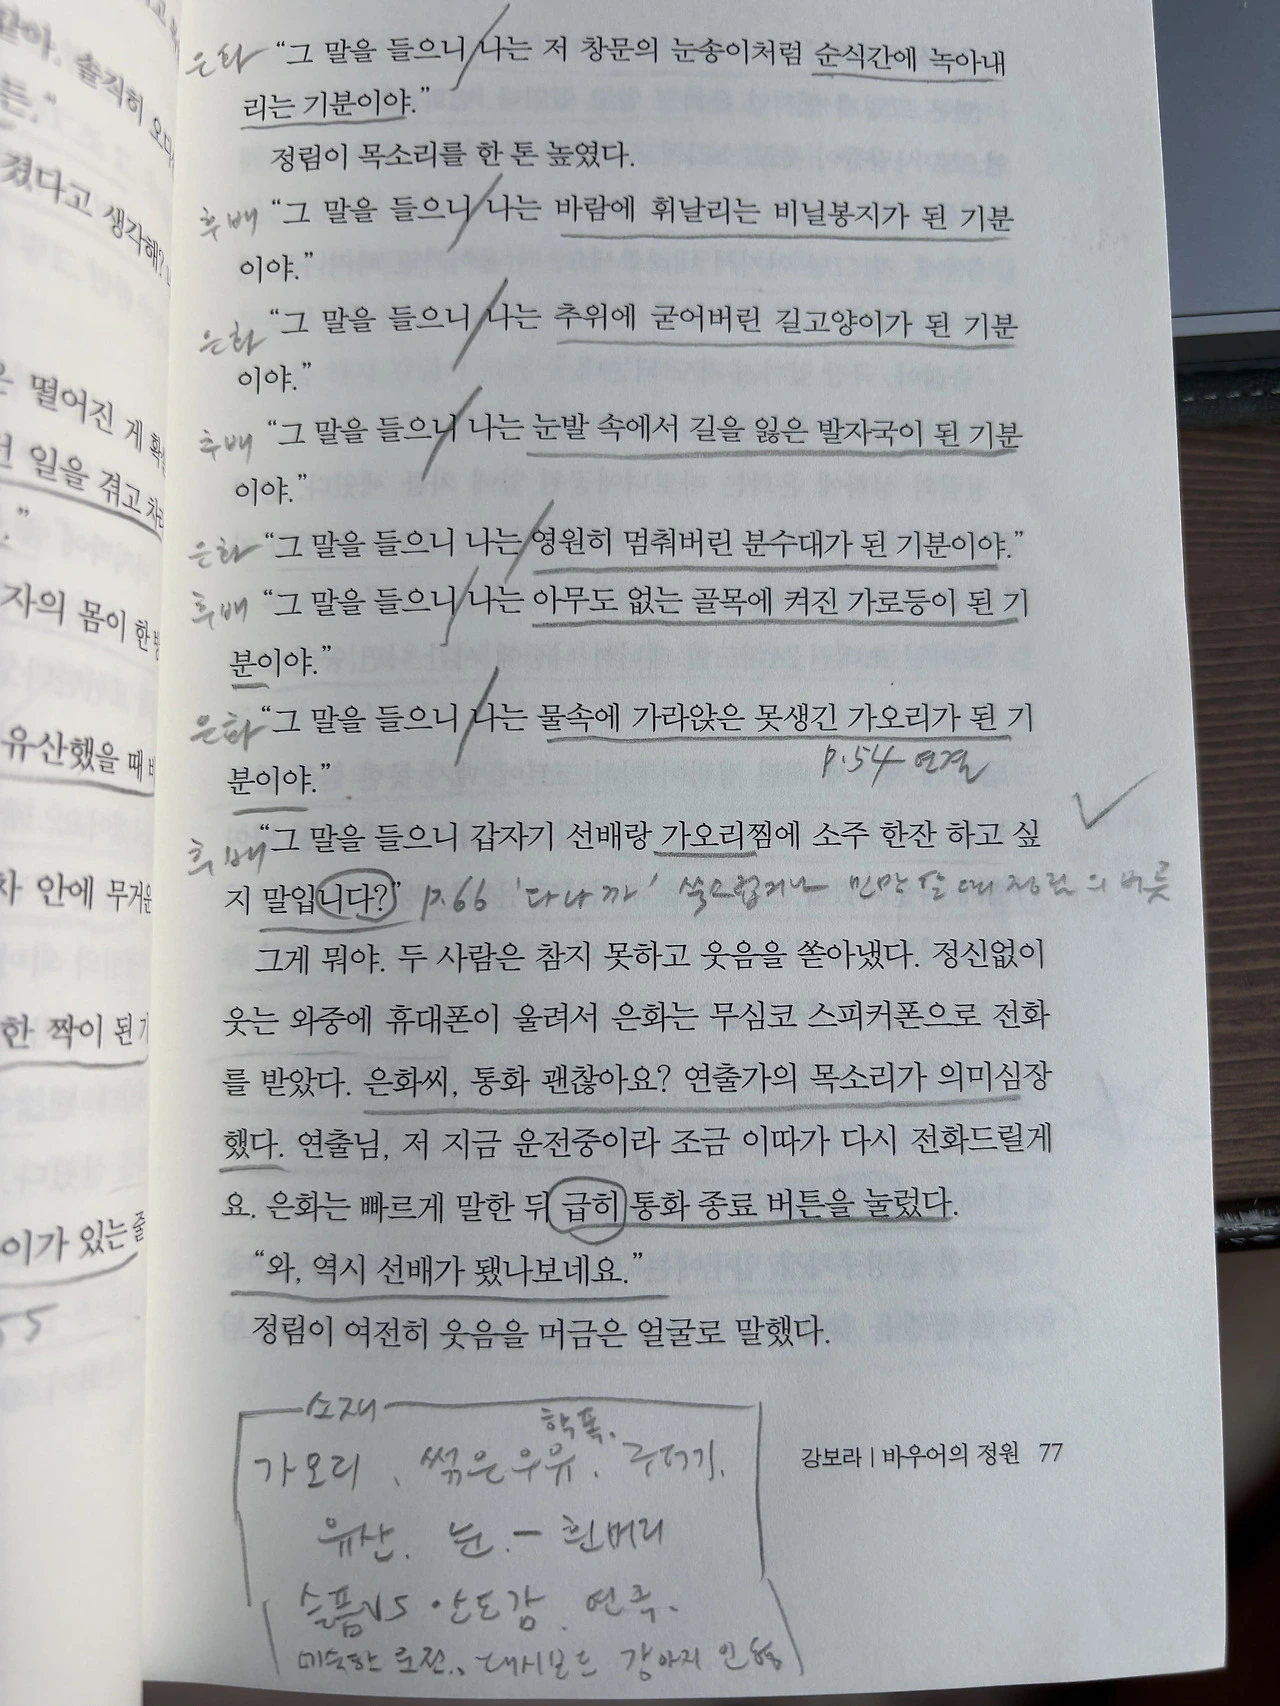 같아. 솔직히 오
든."
겼다고 생각해?
은 떨어진 게 확
일을 겪고 차
."
자의 몸이 한
유산했을 때
차 안에 무거운
한 짝이 된 기
이가 있는 줄
55
은화 "그 말을 들으니 / 나는 저 창문의 눈송이처럼 순식간에 녹아내
리는 기분이야."
정림이 목소리를 한 톤 높였다.
후배 "그 말을 들으니 / 나는 바람에 휘날리는 비닐봉지가 된 기분
이야."
은화 "그 말을 들으니 / 나는 추위에 굳어버린 길고양이가 된 기분
이야."
후배 "그 말을 들으니 / 나는 눈발 속에서 길을 잃은 발자국이 된 기분
이야."
은화 "그 말을 들으니 나는 / 영원히 멈춰버린 분수대가 된 기분이야."
후배 "그 말을 들으니 / 나는 아무도 없는 골목에 켜진 가로등이 된 기
분이야."
은화 "그 말을 들으니 / 나는 물속에 가라앉은 못생긴 가오리가 된 기
분이야."
p.54 연결
후배 "그 말을 들으니 갑자기 선배랑 가오리찜에 소주 한잔 하고 싶
지 말입니다?" p.66 '다나까' 쑥스럽거나 민망할 때 정림의 버릇
그게 뭐야. 두 사람은 참지 못하고 웃음을 쏟아냈다. 정신없이
웃는 와중에 휴대폰이 울려서 은화는 무심코 스피커폰으로 전화
를 받았다. 은화씨, 통화 괜찮아요? 연출가의 목소리가 의미심장
했다. 연출님, 저 지금 운전중이라 조금 이따가 다시 전화드릴게
요. 은화는 빠르게 말한 뒤 급히 통화 종료 버튼을 눌렀다.
"와, 역시 선배가 됐나보네요."
정림이 여전히 웃음을 머금은 얼굴로 말했다.
소재
학폭.
가오리, 썪은우유. 구더기.
유산. 눈. - 흰머리
슬픔 VS 안도감. 연극.
미숙한 운전., 대시보드 강아지 인형
강보라 | 바우어의 정원 77